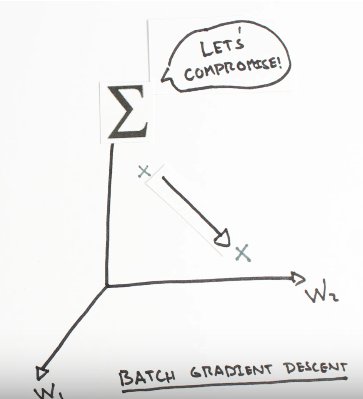 LET'S
COMPROMISE!
Σ
x
x
W2
W1
BATCH GRADIENT DESCENT